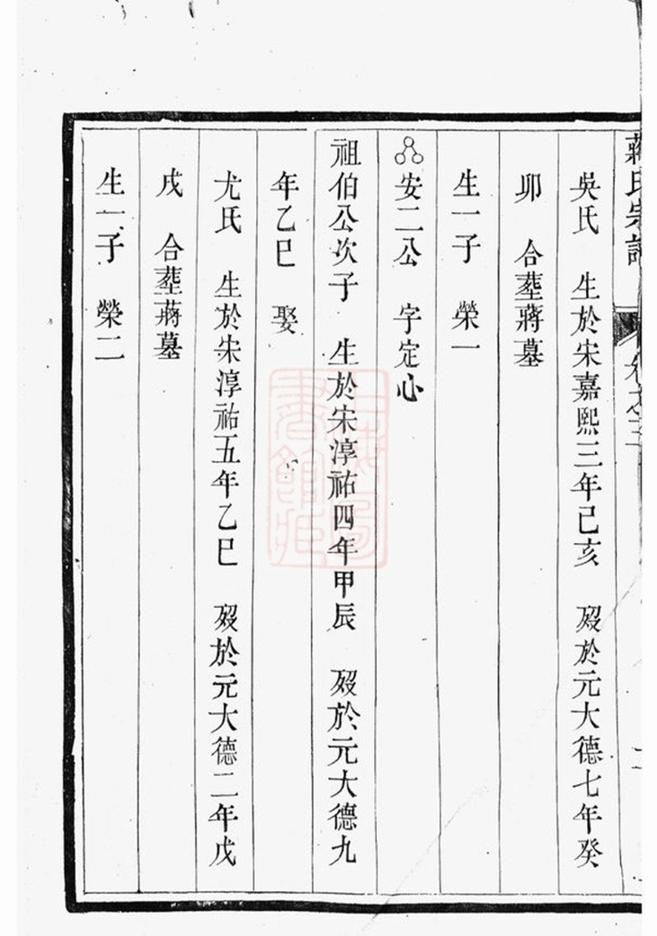 蔣氏宗譜 卷之三
吳氏 生於宋嘉熙三年己亥 歿於元大德七年癸
卯 合塟蔣墓
生一子 榮一
安二公 字定心
祖伯公次子 生於宋淳祐四年甲辰 歿於元大德九
年乙巳 娶
尤氏 生於宋淳祐五年乙巳 歿於元大德二年戊
戌 合塟蔣墓
生一子 榮二
上海圖
書館藏